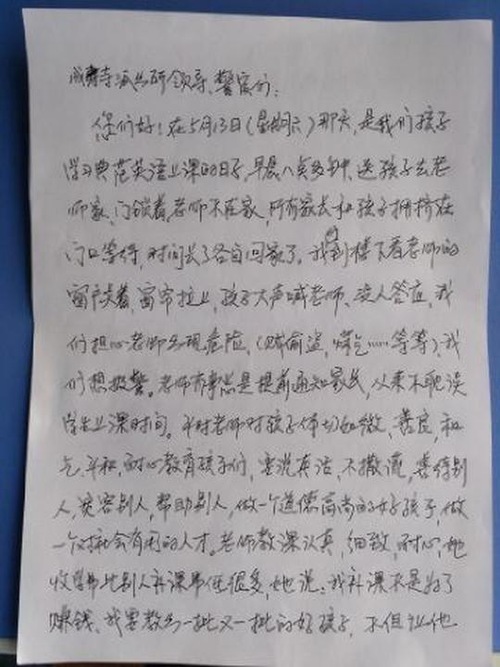 成寿寺派出所领导、警官们：
你们好！在5月13日（星期六）那天，是我们孩子
学习典范英语上课的日子，早晨八点多钟，送孩子去老
师家，门锁着，老师不在家，所有家长和孩子拥挤在
门口等待，时间长了各自回家了。我到楼下看老师的
窗户关着，窗帘拉上，孩子大声喊老师，没人答应，我
们担心老师出现危险，（贼偷盗，煤气……等等），我
们想报警。老师有事总是提前通知家长，从来不耽误
学生上课时间。平时老师对孩子体切细微，善良，和
气，平和，耐心教育孩子们，要说真话，不撒谎，善待别
人，宽容别人，帮助别人，做一个道德高尚的好孩子，做
一个对社会有用的人才。老师教课认真，细致，耐心，她
收学费比别人补课费低很多，她说：我补课不是为了
赚钱，我要教出一批又一批的好孩子，不但让他